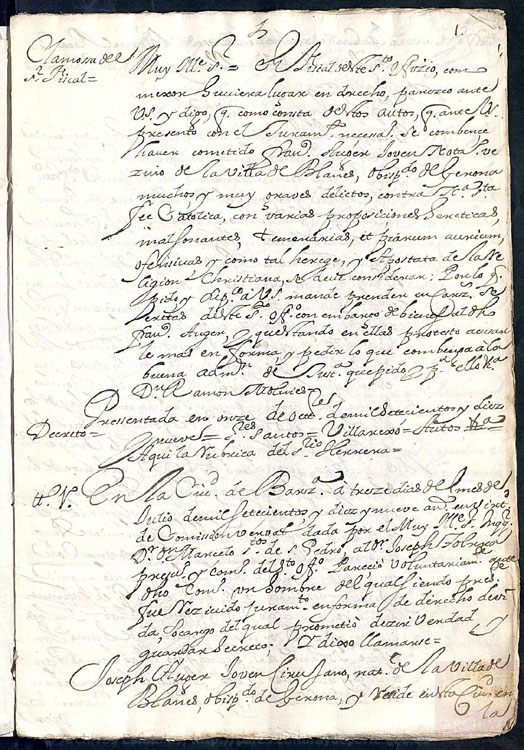 1.
Clamosa del
Sr. Fiscal=
Muy Ille. Sr.= El Fiscal deste Sto. Ofizio, como
mexor huviera lugar en derecho, parezco ante
VS. y digo, q. como consta destos autos, q. ante VS.
presento con el Juramto. necesso. Se combence
haver cometido Franco. Auger Joven Nota. ve
zino de la Villa de Blanes, obispdo. de Gerona
muchos y muy graves delictos, contra Na. Sta.
Fee Catolica, con varias proposiciones hereticas,
malsonantes, temerarias, et piarum aurium,
ofensivas y como tal herege, y Apostata de la Re
ligion Christiana, se deve considerar: Por lo q.
Pido y supco. a VS. mande prender en Carzs. Se
cretas deste So. Ofo. con embargo de bienes al dho
Franco. Auger, y questando en ellas protesto acusar
le mas en forma y pedir lo que combenga a la
buena admon. de Justa. que pido
Dr. Ramon Molines
Presentada en onze de Octre. de mil setecientos y diez
Decreto=
y nueve= Sres. Santos= Villarexo= Autos
Aqui la rubrica del Srio. Herrera=
tt. V.
En la Ciud. de Barza. a treze dias del mes de
Julio de mil setecientos y diez y nueve años en virtd.
de Comission verval dada por el Muy Ille. S. Inqr.
Dn. Dr. Marcelo Stos. de S. Pedro, al Dr. Joseph
presvo. y Comº. del So. Ofo. Parecio voluntariamte. ante
dho Comº. un hombre del qual siendo preste.
fue rezivido juramto. en forma de derecho devi
da, so cargo del qual prometio dezir verdad
y guardar secreto. Y dixo llamarse=
Joseph Auger Joven Cirujano, nal. de la Villa de
Blanes, obispdo. de Gerona, y reside en esta Ciud. en
la